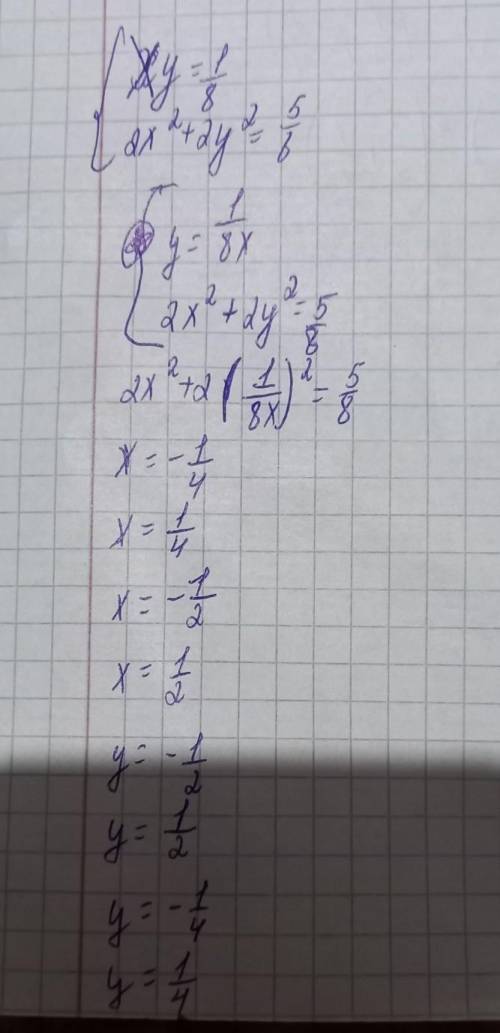 xy = 1/8
2x² + 2y² = 5/8
y = 1/8x
2x² + 2y² = 5/8
2x² + 2(1/8x)² = 5/8
x = -1/4
x = 1/4
x = -1/2
x = 1/2
y = -1/2
y = 1/2
y = -1/4
y = 1/4